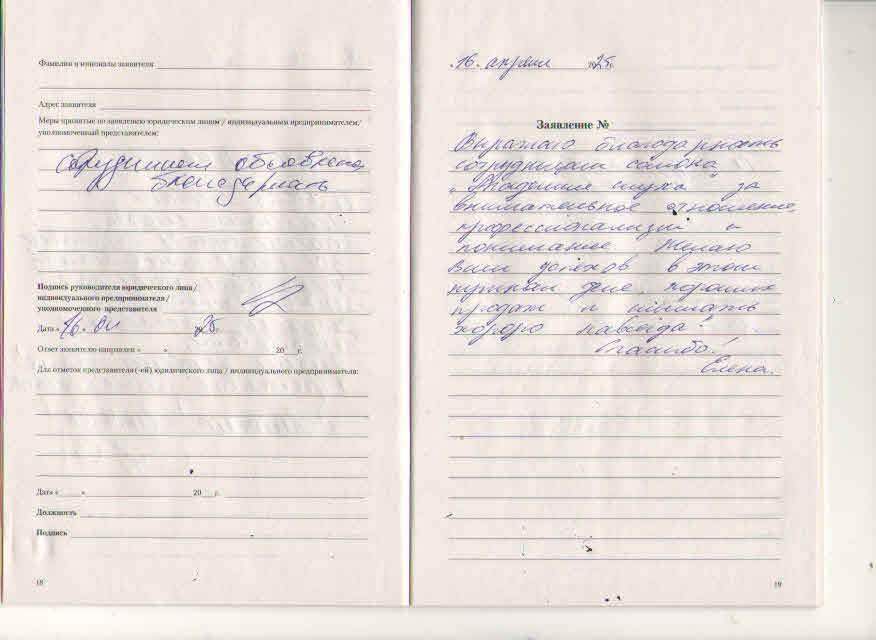 Фамилия и инициалы заявителя
Адрес заявителя
Меры принятые по заявлению юридическим лицом / индивидуальным предпринимателем/
уполномоченный представителем:
сотрудникам объявлена
благодарность
Подпись руководителя юридического лица /
индивидуального предпринимателя /
уполномоченного представителя
Дата «16» 04 2025 г.
Ответ заявителю направлен « » 20 г.
Для отметок представителя (-ей) юридического лица / индивидуального предпринимателя:
Дата « » 20 г.
Должность
Подпись
18
«16» апреля 2025 г.
Заявление №
Выражаю благодарность
сотрудникам салона
"Академия слуха" за
внимательное отношение,
профессионализм и
понимание Желаю
Вам успехов в этом
нужном деле, хороших
продаж и
хорого навсегда!
Спасибо!
Елена.
19